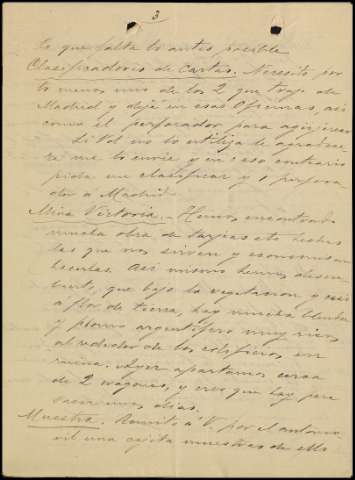 3
lo que falta lo antes posible
Clasificadores de Cartas. Necesito por
lo menos uno de los 2 que traje de
Madrid y dejé en esas Oficinas, asi
como el perforador para agujerear
Si Vd no lo utiliza le agradece
ré me lo envie y en caso contrario
pida un clasificar y 1 perfora
dor á Madrid.
Mina Victoria.- Hemos encontrado
mucha obra de zanjas etc hechas
las que nos sirven y economisan
hacerlas. Asi mismo hemos descu
bierto, que bajo la vegetacion y casi
á flor de tierra, hay mucha blenda
y plomo argentifero muy ricos
al rededor de los edificios en
ruina. Ayer apartamos cerca
de 2 vagones, y creo que hay para
sacar unos dias.
Muestra. Remito á V. por el automo
vil una cajita muestras de ello